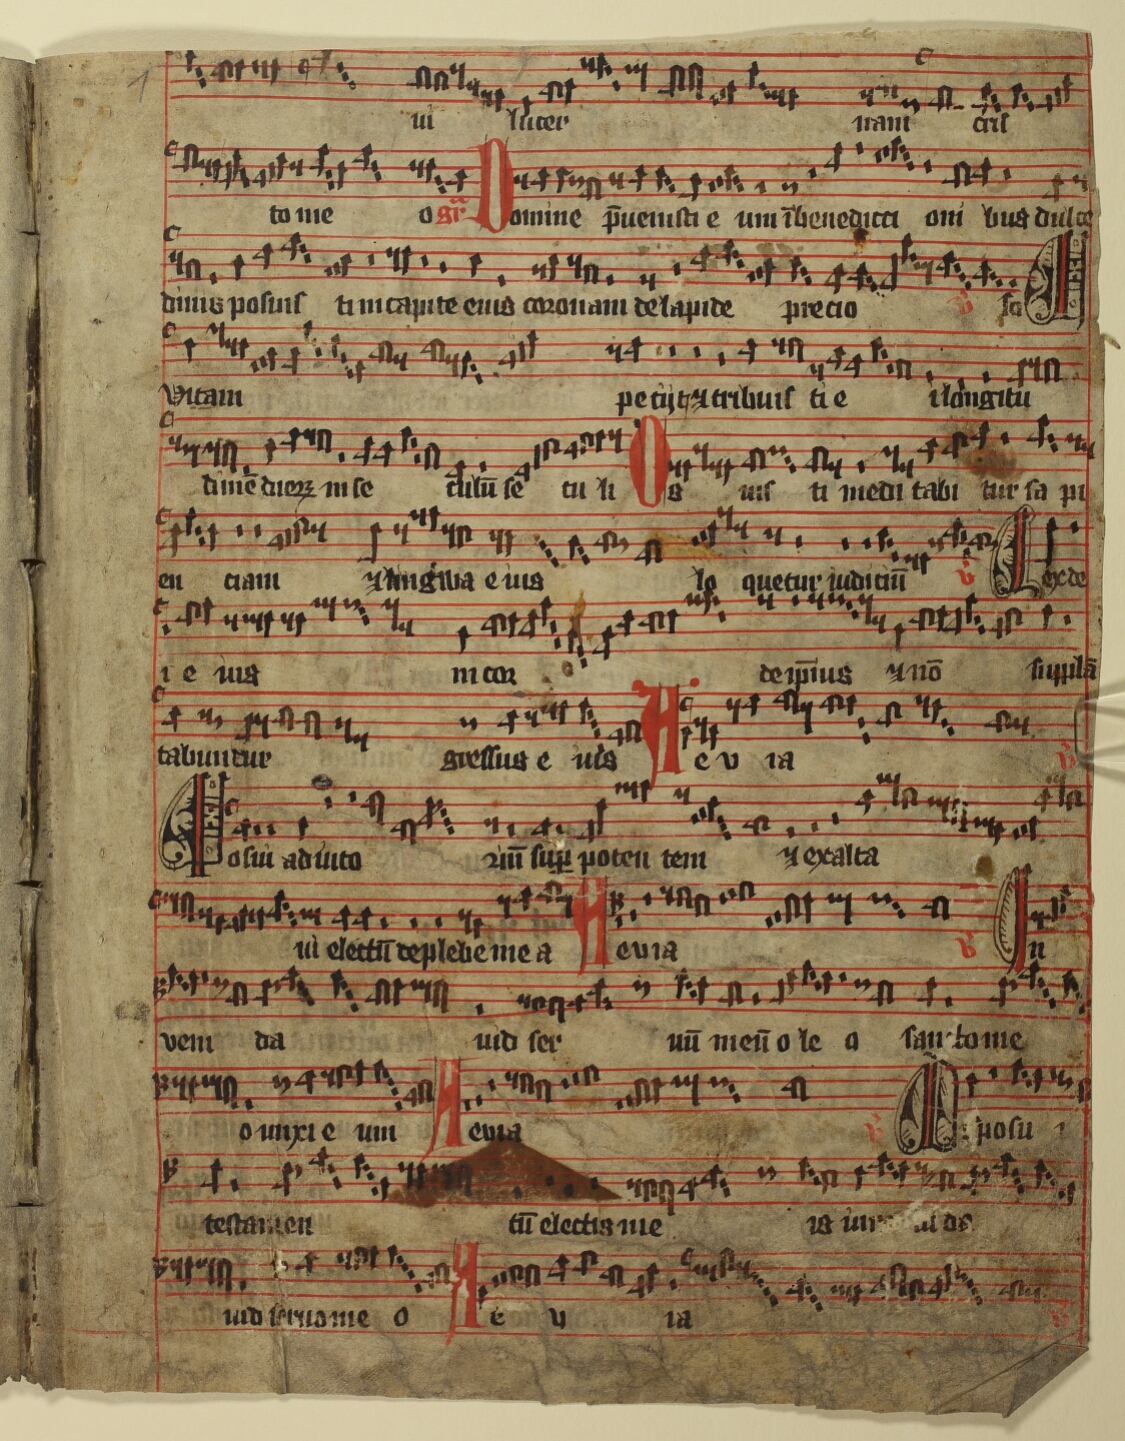 1
ui lucer nam cris
to me o gr̄ Domine p̄uenisti e um ī benedicti oni bus dulce
dinis posuis ti in capite eius coronam de lapide precio so
Vitam petijt ⁊ tribuis ti e i longitu
dinē dierꝝ in se culū se cu li Os ius ti medi tabi tur sa pi
en ciam ⁊ lingwa e ius lo quetur iudiciū Lex de
i e ius in cor de ip̄ius ⁊ nō supplā
tabuntur gressus e ius A e v ia
Posui adiuto riū suꝑ poten tem ⁊ exalta
ui electū de plebe me a A evia In
veni da uid ser uū meū o le o sancto me
o unxi e um A evia posu i
testamen tū electis me is
uid seruo me o A e v ia